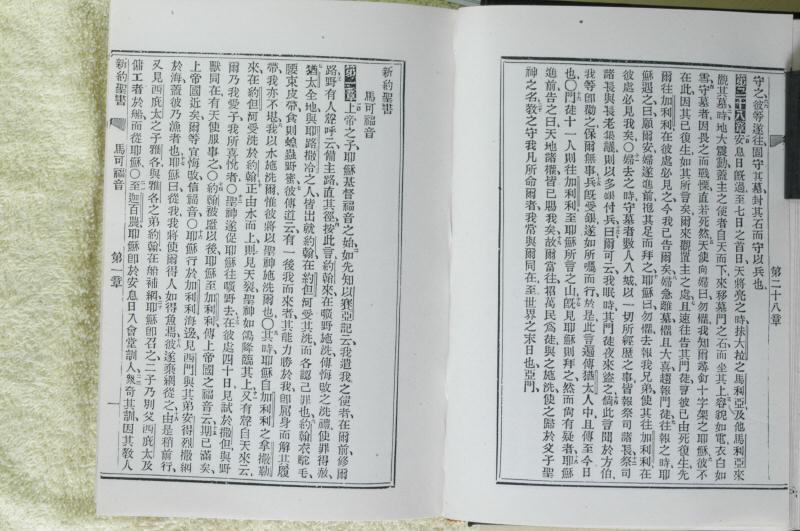 第二十八章
守之、彼等遂往、固守其墓、封其石而守以兵也、
第二十八章 安息日旣過、至七日之首日、天將亮之時、抹大拉之馬利亞、及他馬利亞來
觀其墓時、地大震動、蓋主之使者自天而下來、移墓門之石而坐其上、容貌如電、衣白如
雪、守墓者、因畏之而戰慄、直若死然、天使向婦曰、勿懼、我知爾尋釘十字架之耶穌、彼不
在此、因其已復生、如其所言矣、爾來觀置主之處、且速往告其門徒言、彼已由死復生、先
爾往加利利、在彼處必見之、今我已告爾矣、婦急離墓、懼且大喜、趨報門徒、往報之時、耶
穌遇之曰、願爾安、婦遂進前、抱其足而拜之、耶穌曰、勿懼、去報我兄弟、使其往加利利、在
彼處必見我矣、○婦去之時、守墓者數人入城、以一切所經歷之事、皆報祭司諸長、祭司
諸長與長老集議、則以多銀付兵曰、爾可云、我眠時、其門徒夜來盜之、倘此言聞於方伯、
我等卽勸之、保爾無事、兵旣受銀、遂如所囑而行、於是此言遍傳猶太人中、且傳至今日
也、○門徒十一人則往加利利、至耶穌所言之山、旣見耶穌則拜之、然而尚有疑者、耶穌
進前告之曰、天地諸權皆已賜我矣、故爾當往招萬民爲徒、與之施洗、使之歸於父子聖
神之名、教之守我凡所命爾者、我常與爾同在、至世界之末日也、亞門、
新約聖書
馬可福音
第一章 上帝之子耶穌基督福音之始、如先知以賽亞記云、我遣我之使者在爾前、修爾
路、野有人聲呼云、備主路、直其徑、按此言約翰來在曠野施洗、傳悔改之洗禮、使罪得赦、
猶太全地與耶路撒冷之人皆出就約翰、在約但河受其洗、而各認己罪也、約翰衣駝毛、
腰束皮帶、食則蝗蟲野蜜、彼傳道云、有一後我而來者、其能力勝於我、卽屈身而解其履
帶、我亦不堪、我以水施洗爾、惟彼將以聖神施洗爾也、○其時耶穌自加利利之拿撒勒
來、在約但河受洗於約翰、正由水而上、則見天裂、聖神如鴿降臨其上、又有聲自天來云、
爾乃我愛子、我所喜悅者、○聖神遂促耶穌往曠野去、在彼處四十日、見試於撒但、與野
獸同在、有天使服事之、○約翰被監以後、耶穌至加利利傳上帝國之福音、云、期已滿矣、
上帝國近矣、爾等宜悔改、信福音、○耶穌行於加利利海邊、見西門與其弟安得烈撒網
於海、蓋彼乃漁者也、耶穌曰、從我、我將使爾得人如得魚焉、彼遂棄網從之、由是稍前行、
又見西庇太之子雅各、與雅各之弟約翰在船補網、耶穌卽召之、二子乃別父西庇太及
傭工者於船、而從耶穌、○至迦百農、耶穌卽於安息日入會堂訓人、衆奇其訓、因其教人
新約聖書 馬可福音 第一章 一